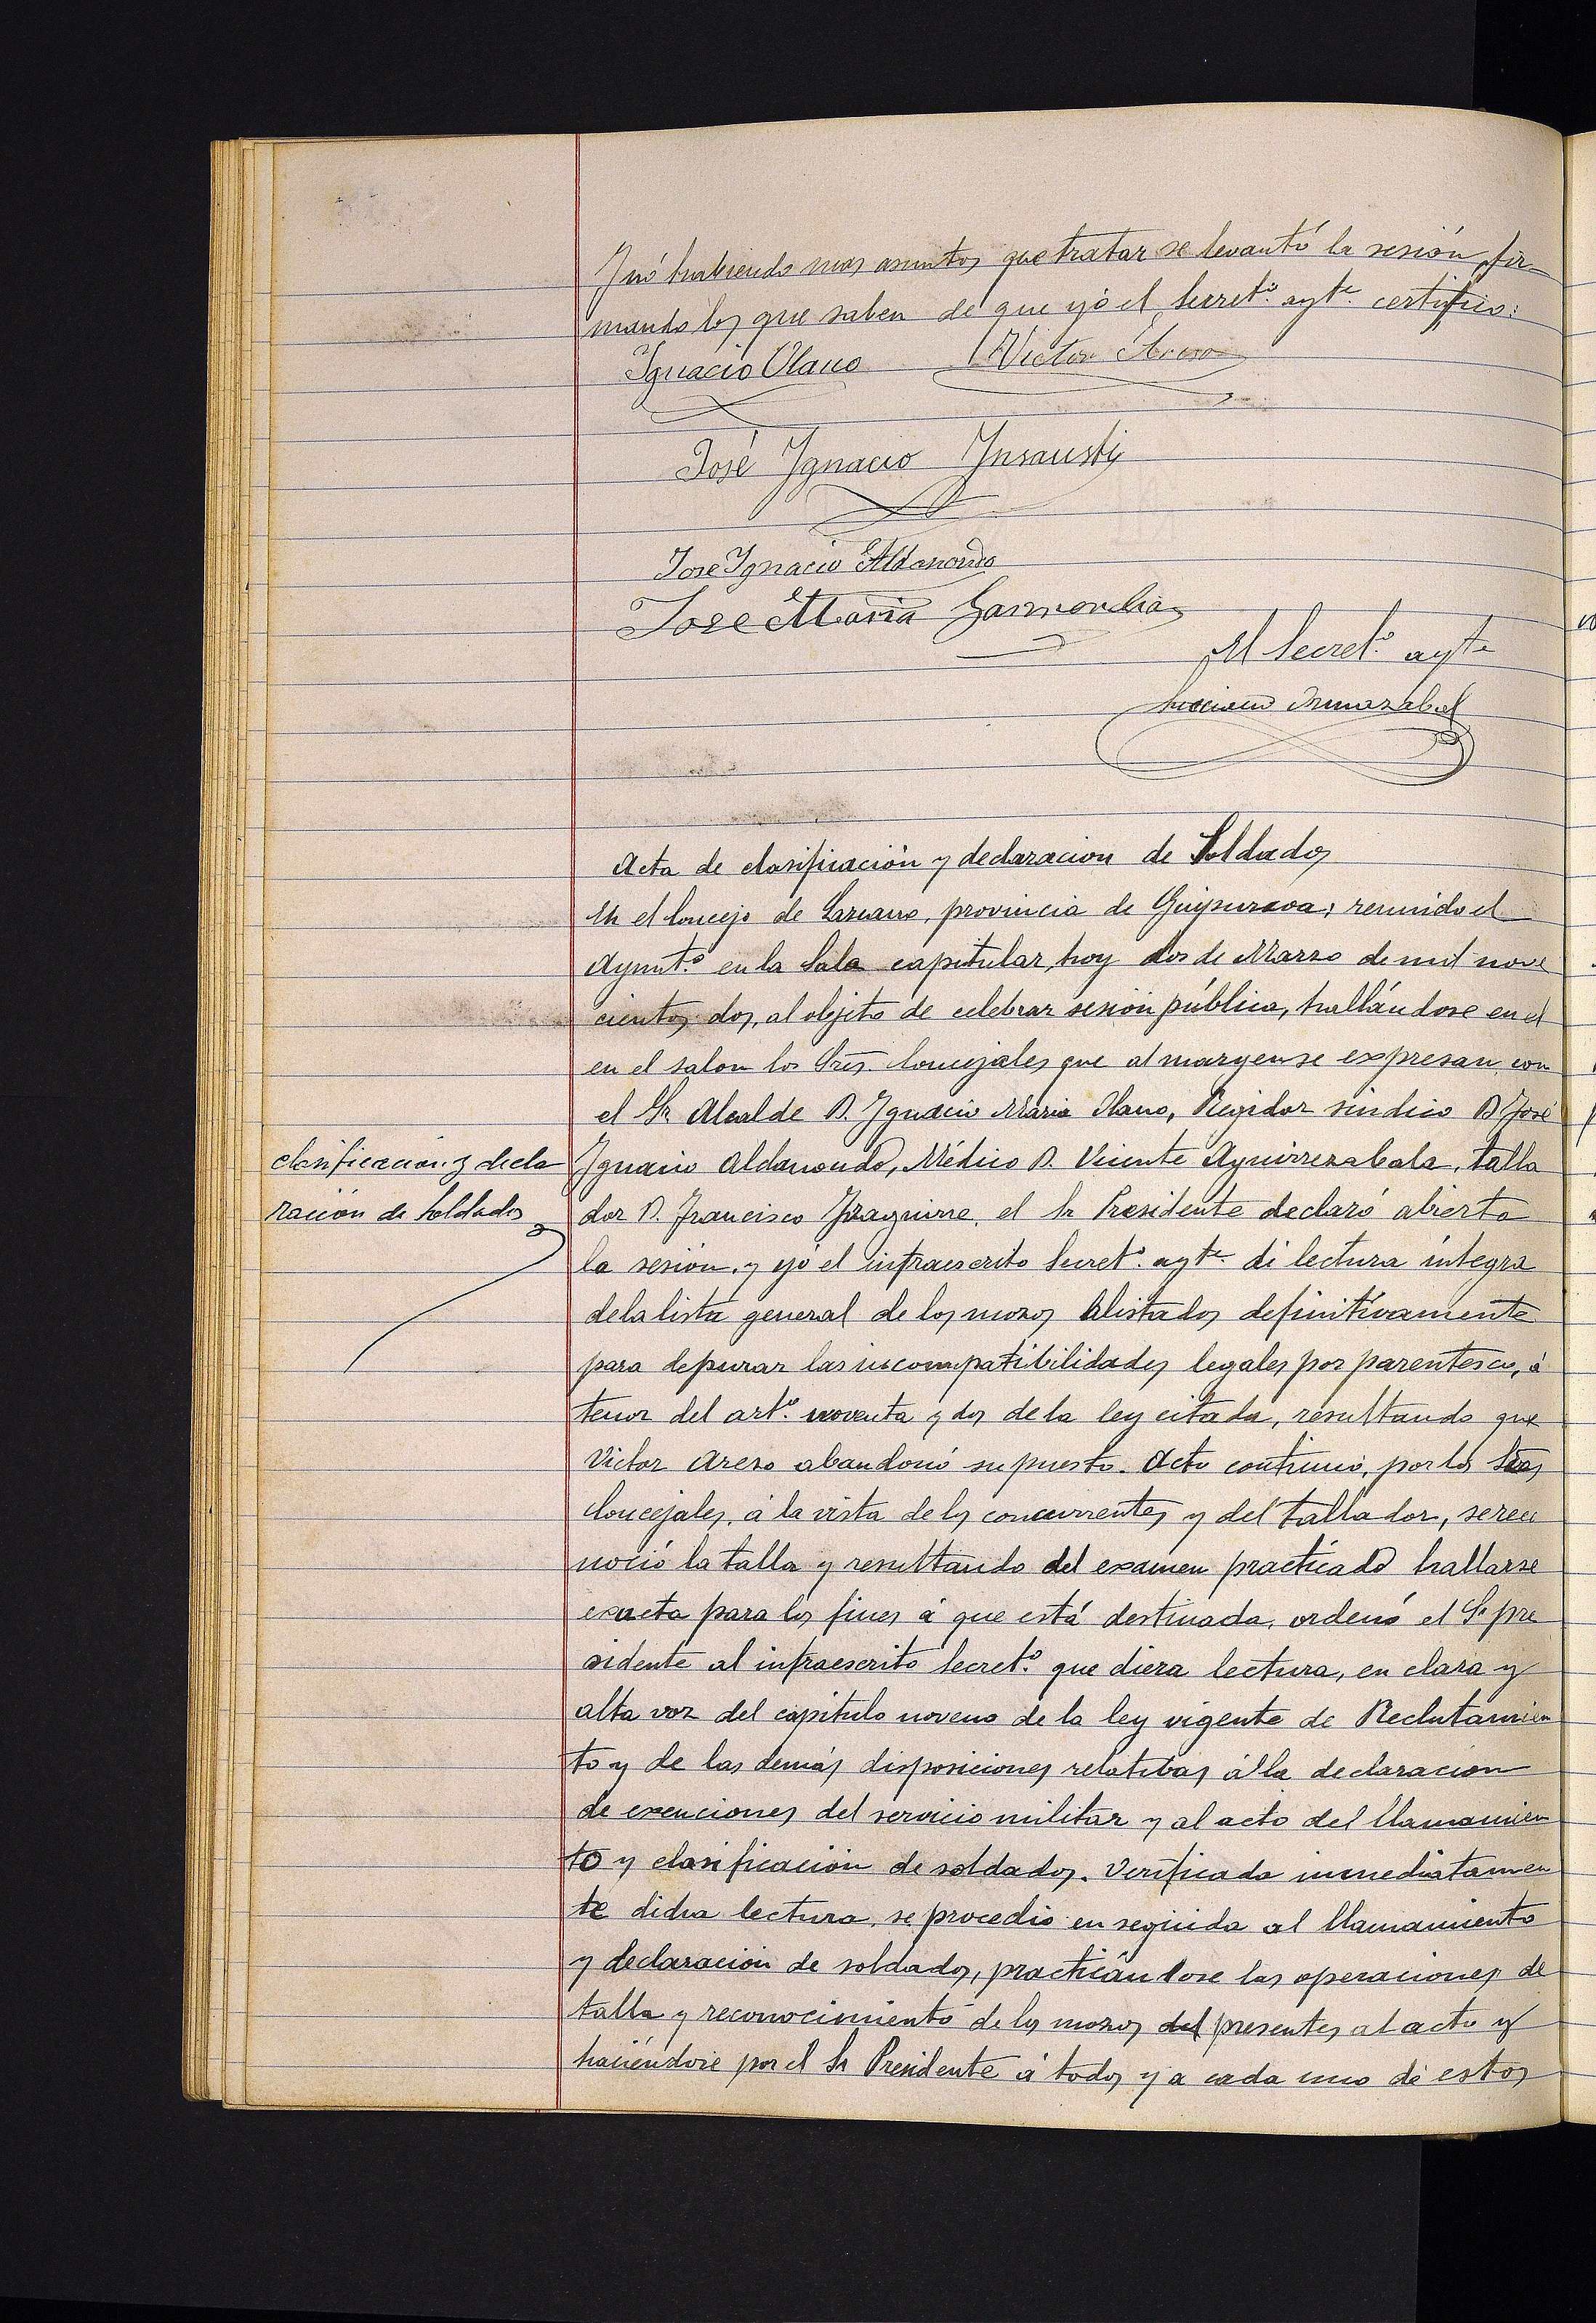 Y nó habiendo mas asuntos que tratar se levantó la sesión, fir-
mando los que saben de que yó el Secret.º aytᵉ certifico:
Ygnacio Olano Victor Arezo
José Ygnacio Ynsausti
Jose Ygnacio Aldanondo
Jose Maria Garmendia
El Secret.º aytᵉ
Luciano Irmazabal
Acta de clasificación y declaracion de Soldados
En el Concejo de Lazcano, provincia de Guipuzcoa; reunido el
Ayunt.º en la Sala capitular, hoy dos de Marzo de mil nove
cientos dos, al objeto de celebrar sesión pública, hallándose en el
en el salon los Sres. Concejales que al margen se expresan, con
el Sr. Alcalde D. Ygnacio Maria Olano, Regidor sindico D José
clasificacion y decla
ración de Soldados
Ygnacio Aldanondo, Médico D. Vicente Aguirrezabala, talla
dor D. Francisco Yzaguirre, el Sr Presidente declaró abierta
la sesión, y yó el infraescrito Secret.º aytᵉ di lectura integra
de la lista general de los mozos alistados definitivamente
para depurar las incompatibilidades legales por parentesco, á
tenor del art.º noventa y dos de la ley citada, resultando que
Victor Arezo abandonó su puesto. Acto continuo, por los Sres
Concejales, á la vista de los concurrentes y del tallador, se reco
noció la talla y resultando del examen practicado hallarse
exacta para los fines á que está destinada, ordenó el Sr pre
sidente al infraescrito Secret.º que diera lectura, en clara y
alta voz del capitulo noveno de la ley vigente de Reclutamien
to y de las demás disposiciones relatibas á la declaracion
de exenciones del servicio militar y al acto del llamamien
to y clasificación de soldados. Verificada inmediatamen
te dicha lectura, se procedio en seguida al llamamiento
y declaración de soldados, practicándose las operaciones de
talla y reconocimiento de los mozos del presentes al acto y
haciéndose por el Sr Presidente á todos y a cada uno de estos